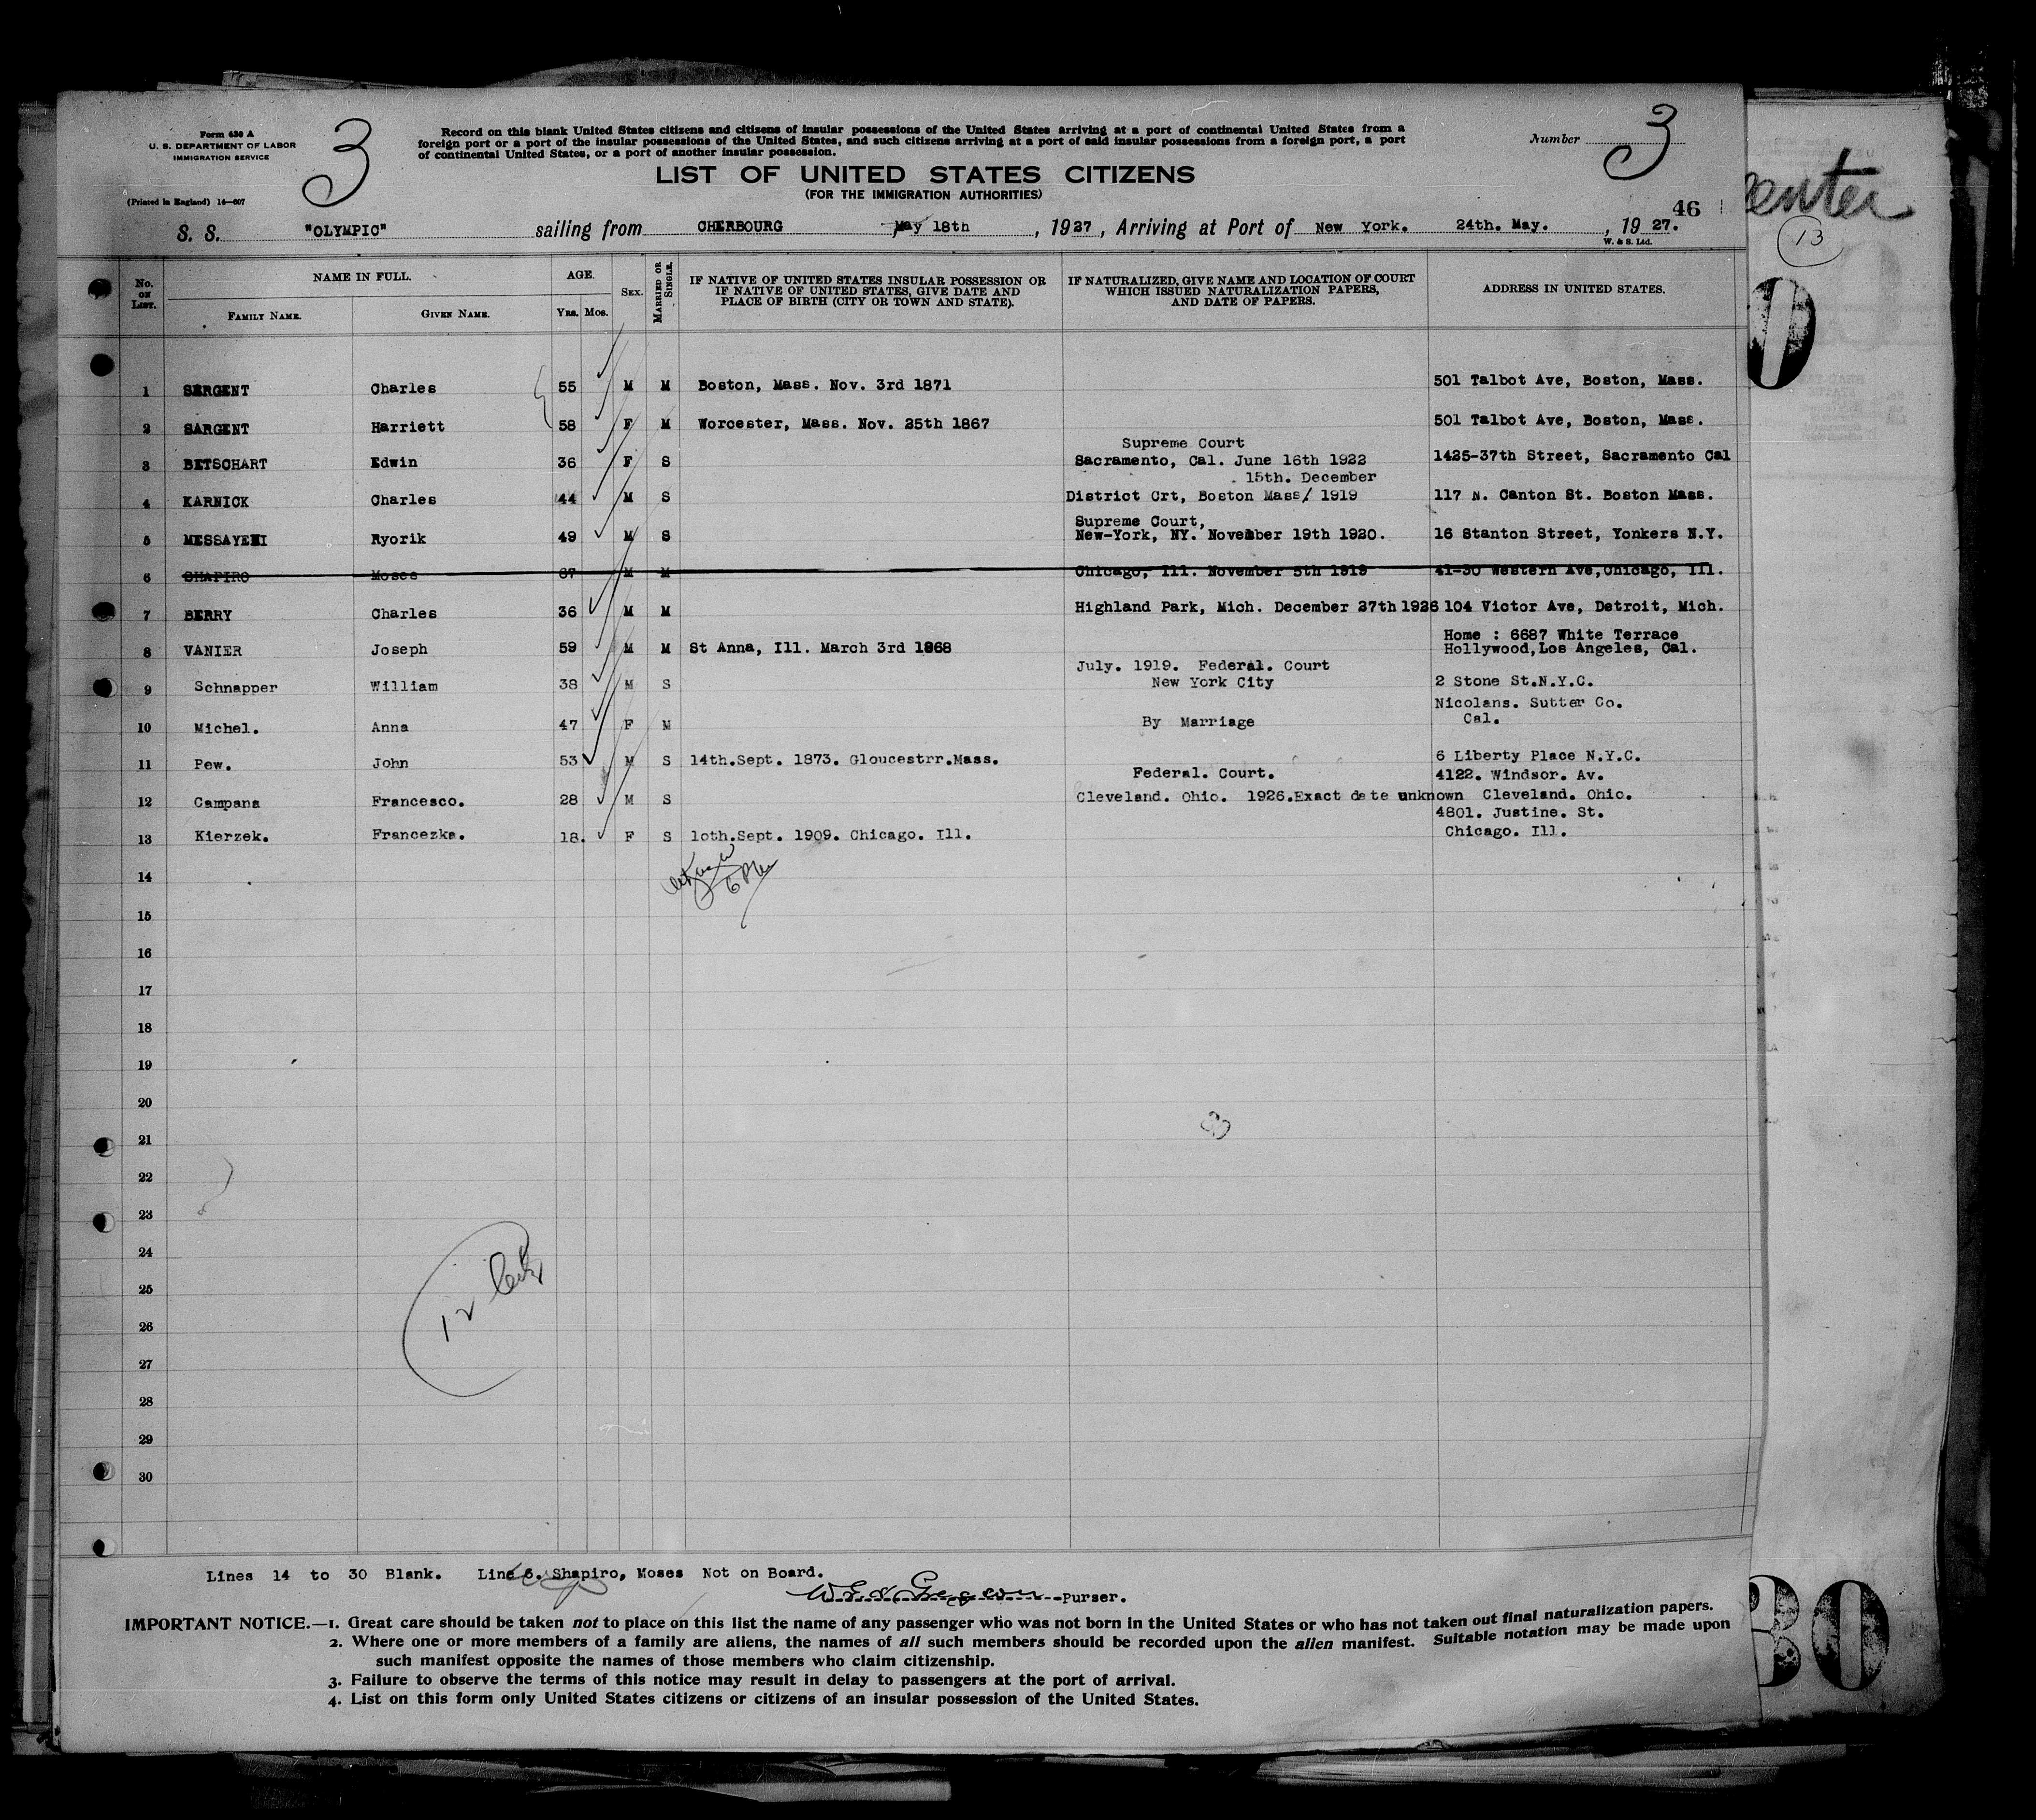 Form 630 A
U. S. DEPARTMENT OF LABOR
IMMIGRATION SERVICE
(Printed in England) 14—607
3
Record on this blank United States citizens and citizens of insular possessions of the United States arriving at a port of continental United States from a
foreign port or a port of the insular possessions of the United States, and such citizens arriving at a port of said insular possessions from a foreign port, a port
of continental United States, or a port of another insular possession.
LIST OF UNITED STATES CITIZENS
(FOR THE IMMIGRATION AUTHORITIES)
Number 3
46
S. S. "OLYMPIC" sailing from CHERBOURG May 18th, 1927, Arriving at Port of New York. 24th. May., 1927.
W. & S. Ltd.
No. ON LIST. NAME IN FULL. AGE. SEX. MARRIED OR SINGLE. IF NATIVE OF UNITED STATES INSULAR POSSESSION OR IF NATIVE OF UNITED STATES, GIVE DATE AND PLACE OF BIRTH (CITY OR TOWN AND STATE). IF NATURALIZED, GIVE NAME AND LOCATION OF COURT WHICH ISSUED NATURALIZATION PAPERS, AND DATE OF PAPERS. ADDRESS IN UNITED STATES.
FAMILY NAME. GIVEN NAME. YRS. MOS.
1 SERGENT Charles 55 M M Boston, Mass. Nov. 3rd 1871 501 Talbot Ave, Boston, Mass.
2 SARGENT Harriett 58 F M Worcester, Mass. Nov. 25th 1867 501 Talbot Ave, Boston, Mass.
Supreme Court
3 BETSCHART Edwin 36 F S Sacramento, Cal. June 16th 1922 1425-37th Street, Sacramento Cal
15th. December
4 KARNICK Charles 44 M S District Crt, Boston Mass/ 1919 117 N. Canton St. Boston Mass.
Supreme Court,
5 Ryorik 49 M S New-York, NY. November 19th 1920. 16 Stanton Street, Yonkers N.Y.
6 SHAPIRO Moses 37 M M Chicago, Ill. November 5th 1919 41-30 Western Ave,Chicago, Ill.
7 BERRY Charles 36 M M Highland Park, Mich. December 27th 1926 104 Victor Ave, Detroit, Mich.
Home : 6687 White Terrace
8 VANIER Joseph 59 M M St Anna, Ill. March 3rd 1868 Hollywood,Los Angeles, Cal.
July. 1919. Federal. Court
9 Schnapper William 38 M S New York City 2 Stone St.N.Y.C.
Nicolans. Sutter Co.
10 Michel. Anna 47 F M By Marriage Cal.
11 Pew. John 53 M S 14th.Sept. 1873. Gloucestrr.Mass. 6 Liberty Place N.Y.C.
Federal. Court. 4122. Windsor. Av.
12 Campana Francesco. 28 M S Cleveland. Ohio. 1926.Exact date unknown Cleveland. Ohio.
4801. Justine. St.
13 Kierzek. Francezka. 18. F S 10th.Sept. 1909. Chicago. Ill. Chicago. Ill.
14
15
16
17
18
19
20
21
22
23
24
25
26
27
28
29
30
12
Lines 14 to 30 Blank. Line 6. Shapiro, Moses Not on Board.
Purser.
IMPORTANT NOTICE.—1. Great care should be taken not to place on this list the name of any passenger who was not born in the United States or who has not taken out final naturalization papers.
2. Where one or more members of a family are aliens, the names of all such members should be recorded upon the alien manifest. Suitable notation may be made upon
such manifest opposite the names of those members who claim citizenship.
3. Failure to observe the terms of this notice may result in delay to passengers at the port of arrival.
4. List on this form only United States citizens or citizens of an insular possession of the United States.
13
30